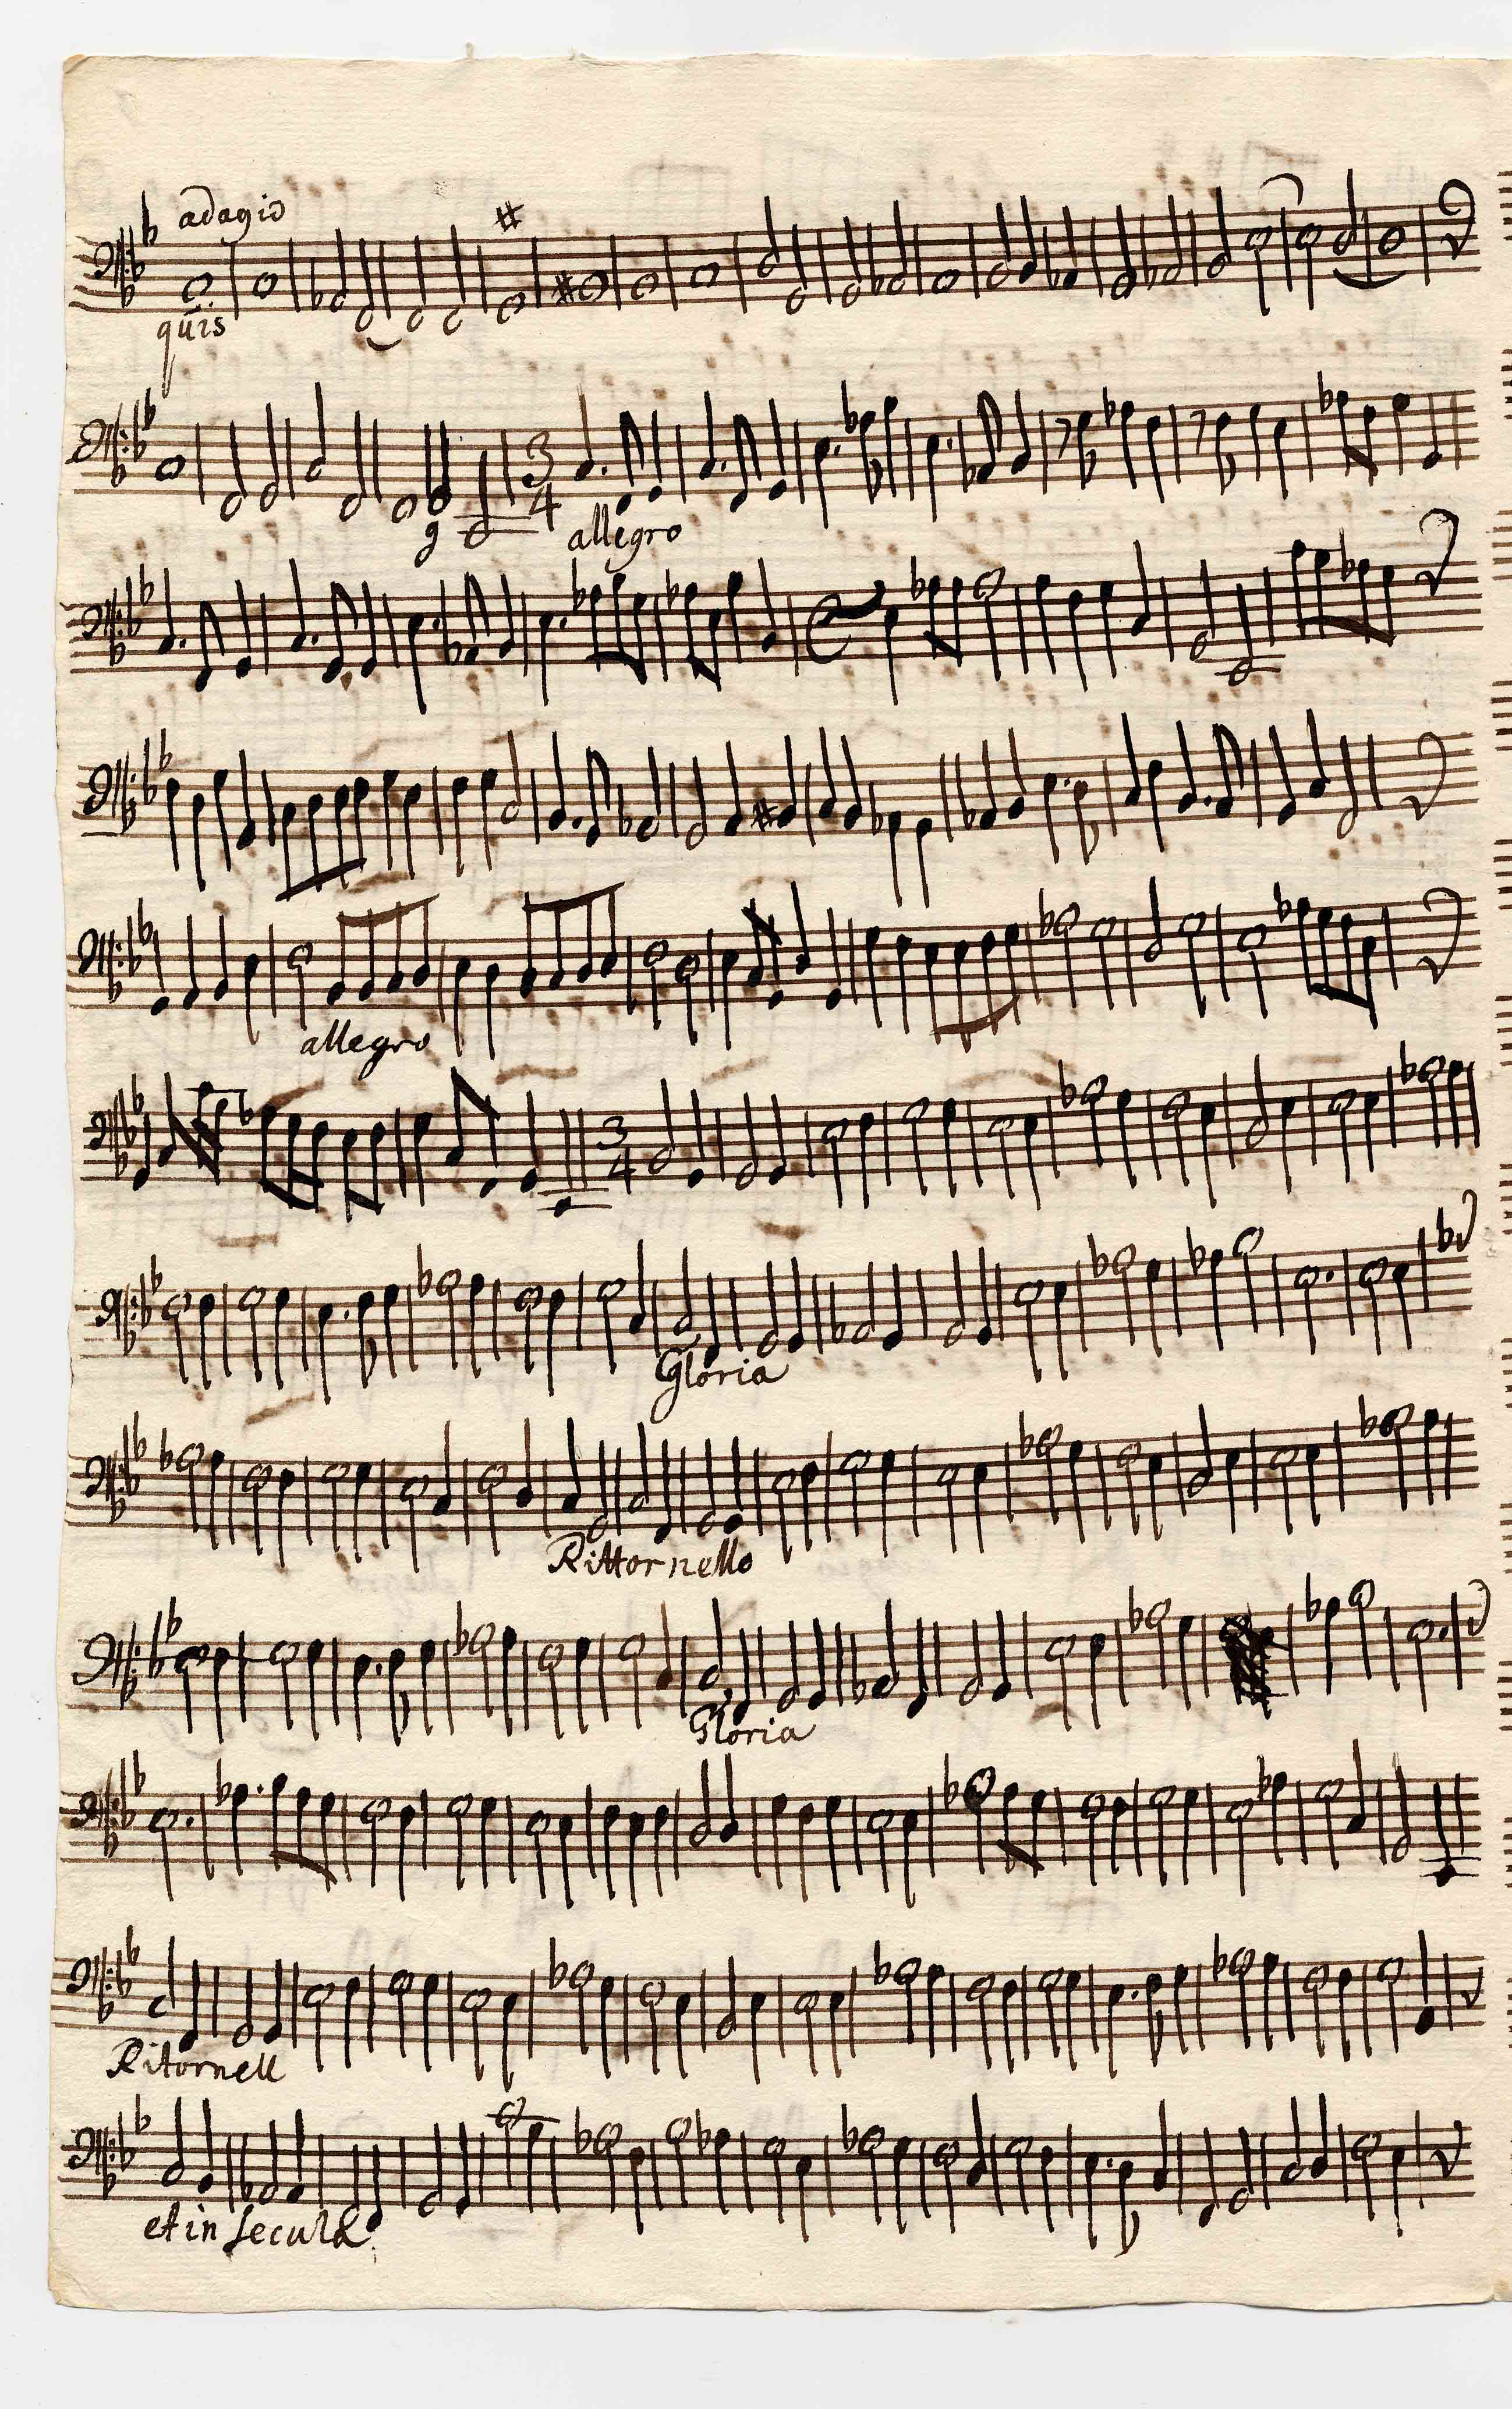 adagio
quis
3
4
g
allegro
allegro
3
4
Gloria
Rittornello
Gloria
Ritornell
et in secula